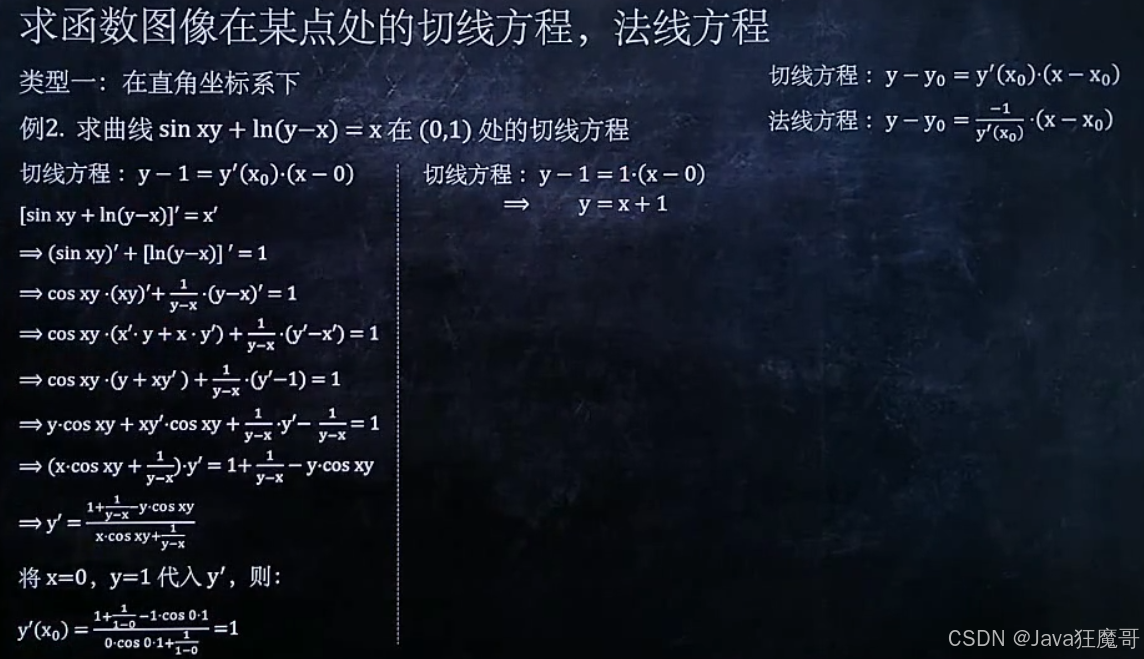 求函数图像在某点处的切线方程，法线方程
类型一：在直角坐标系下
切线方程：y − y₀ = y′(x₀)·(x − x₀)
法线方程：y − y₀ = −1/y′(x₀) ·(x − x₀)
例2. 求曲线 sin xy + ln(y−x) = x 在 (0,1) 处的切线方程
切线方程：y − 1 = y′(x₀)·(x − 0)
[sin xy + ln(y−x)]′ = x′
⟹ (sin xy)′ + [ln(y−x)] ′ = 1
⟹ cos xy ·(xy)′+ 1/(y−x) ·(y−x)′ = 1
⟹ cos xy ·(x′· y + x · y′) + 1/(y−x) ·(y′−x′) = 1
⟹ cos xy ·(y + xy′ ) + 1/(y−x) ·(y′−1) = 1
⟹ y·cos xy + xy′·cos xy + 1/(y−x) ·y′− 1/(y−x) = 1
⟹ (x·cos xy + 1/(y−x))·y′ = 1+ 1/(y−x) − y·cos xy
⟹ y′ = (1+ 1/(y−x) −y·cos xy)/(x·cos xy+ 1/(y−x))
将 x=0，y=1 代入 y′，则：
y′(x₀) = (1+ 1/(1−0) −1·cos 0·1)/(0·cos 0·1+ 1/(1−0)) =1
切线方程：y − 1 = 1·(x − 0)
⟹ y = x + 1
CSDN @Java狂魔哥